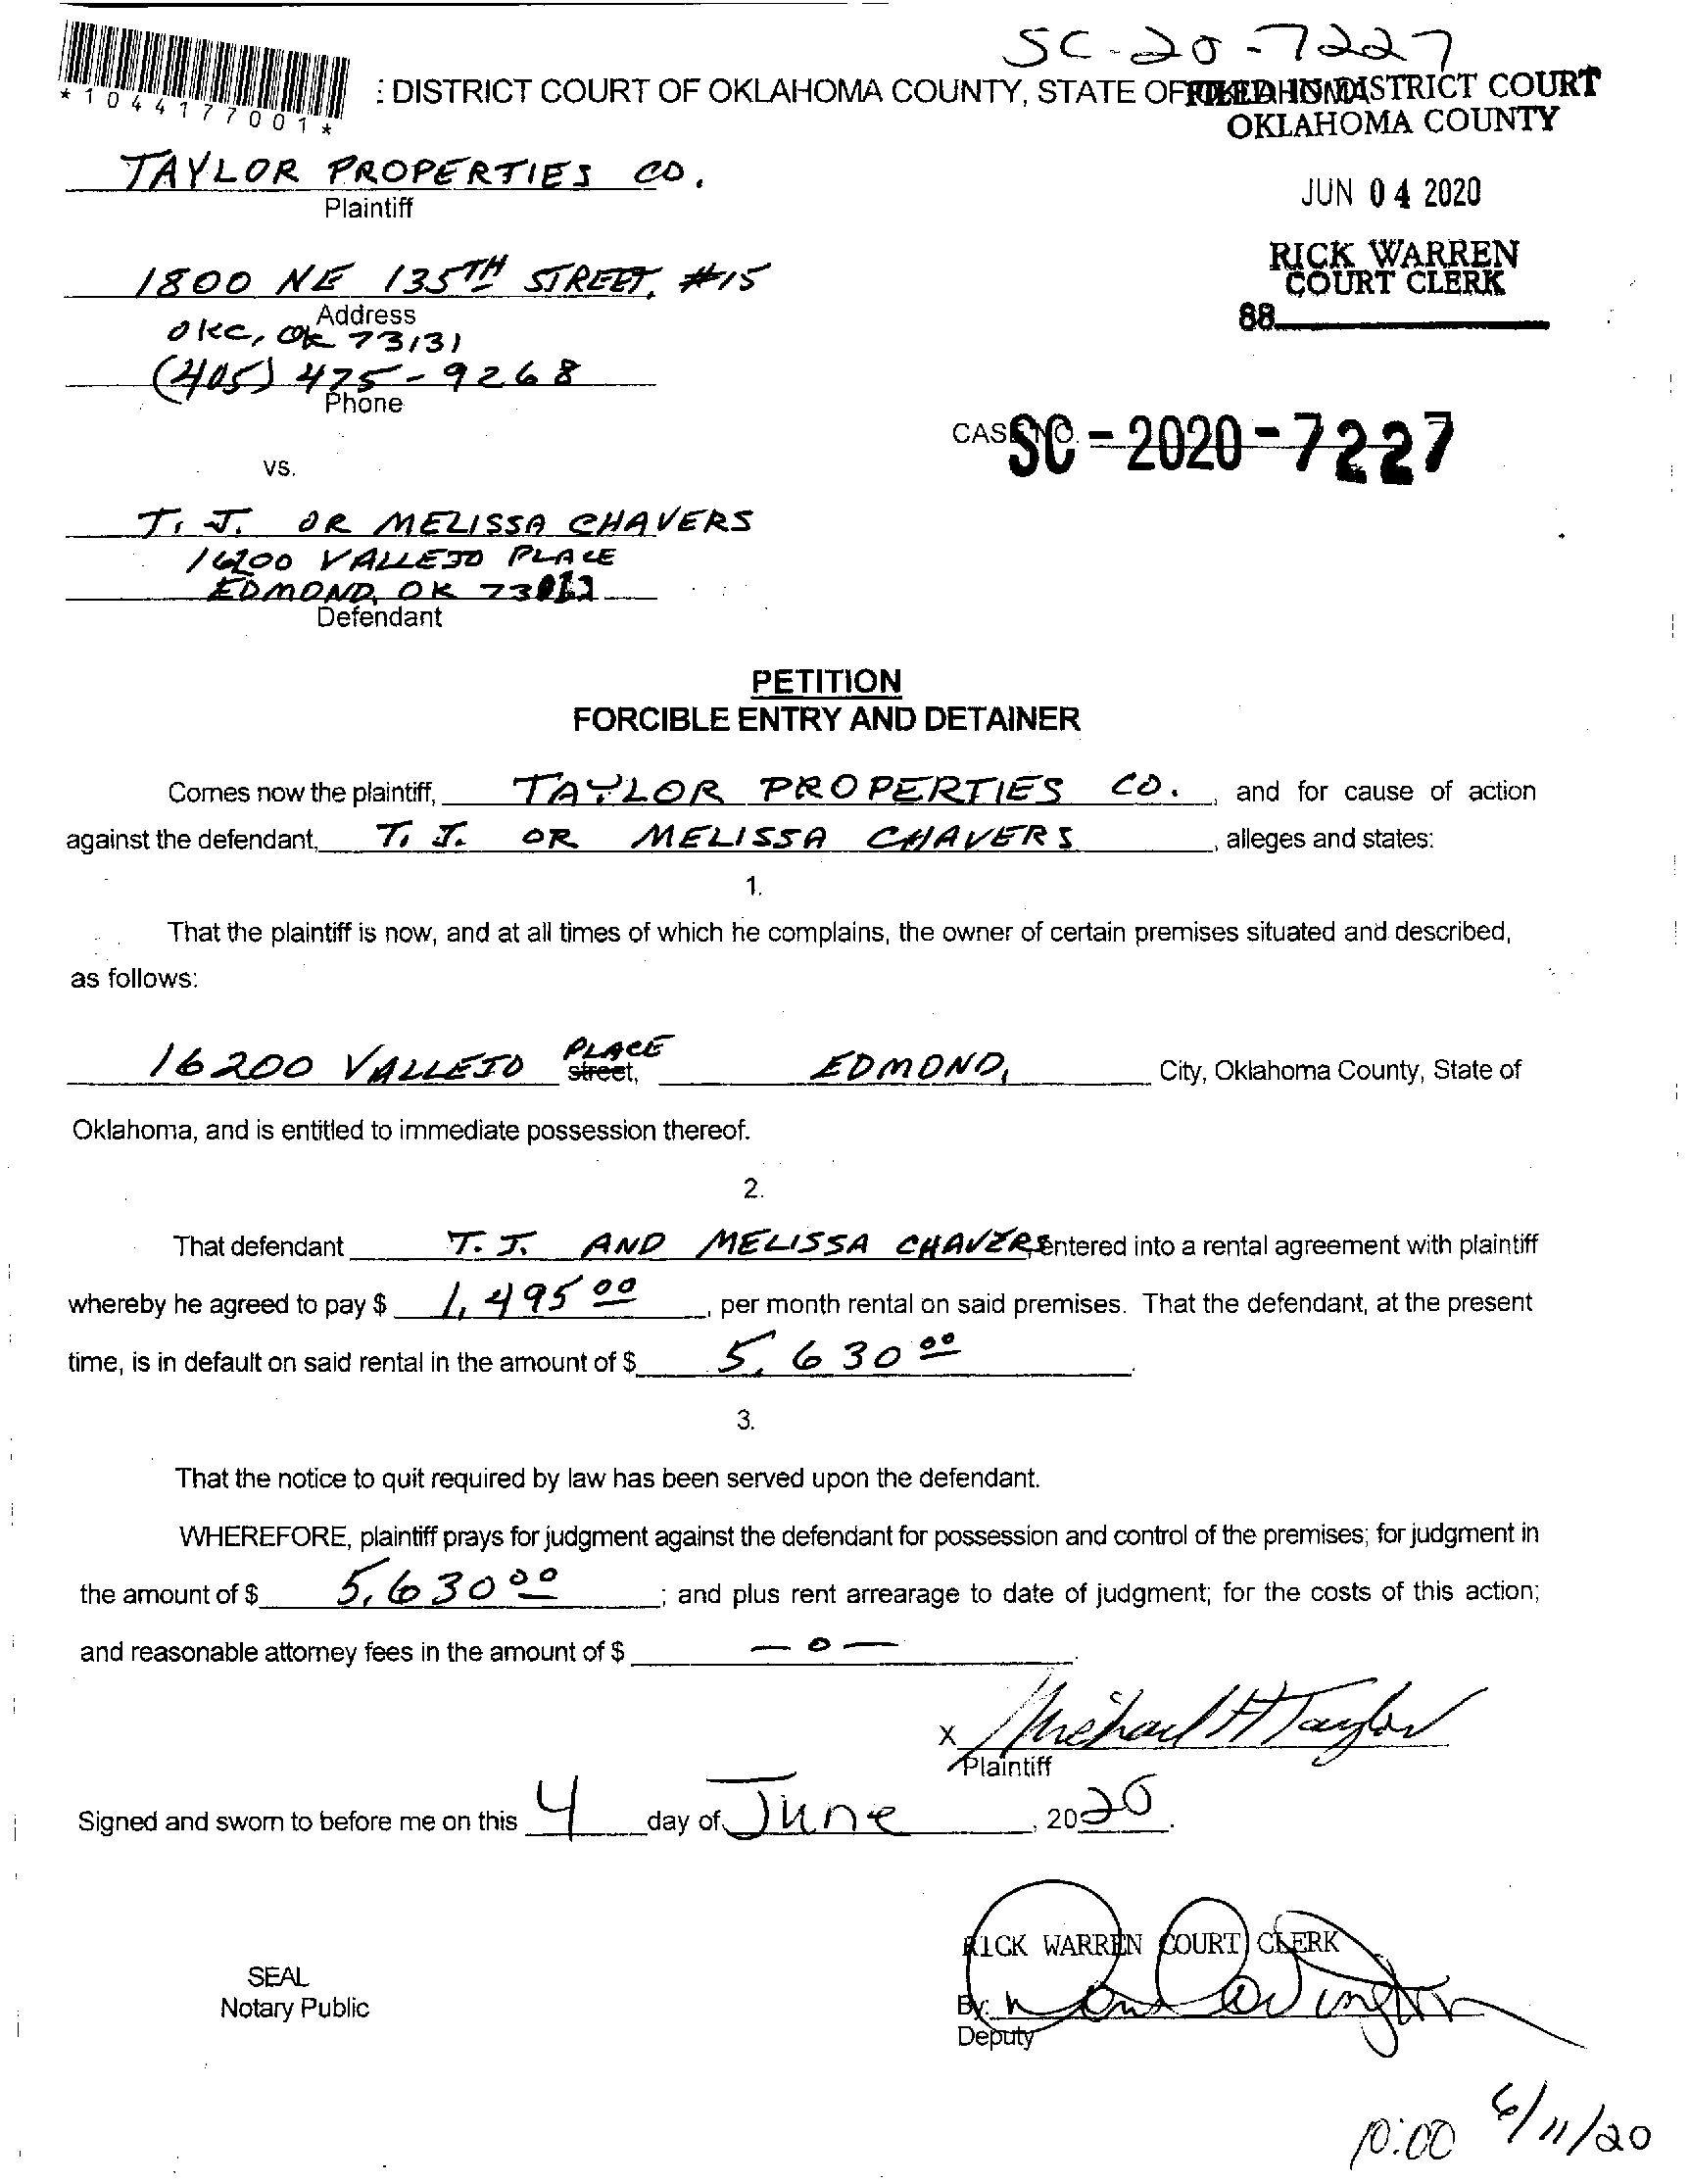 SC-20-7227
*1044177001*
: DISTRICT COURT OF OKLAHOMA COUNTY, STATE OF OKLAHOMA
FILED IN DISTRICT COURT
OKLAHOMA COUNTY
TAYLOR PROPERTIES CO.
Plaintiff
JUN 04 2020
RICK WARREN
COURT CLERK
88
1800 NE 135TH STREET, #15
Address
OKC, OK 73131
(405) 475-9268
Phone
CASE NO. SC-2020-7227
vs.
T. J. OR MELISSA CHAVERS
16200 VALLEJO PLACE
EDMOND, OK
Defendant
PETITION
FORCIBLE ENTRY AND DETAINER
Comes now the plaintiff, TAYLOR PROPERTIES CO., and for cause of action
against the defendant, T. J. OR MELISSA CHAVERS, alleges and states:
1.
That the plaintiff is now, and at all times of which he complains, the owner of certain premises situated and described,
as follows:
16200 VALLEJO PLACE street, EDMOND, City, Oklahoma County, State of
Oklahoma, and is entitled to immediate possession thereof.
2.
That defendant T. J. AND MELISSA CHAVERS entered into a rental agreement with plaintiff
whereby he agreed to pay $ 1,495 00, per month rental on said premises. That the defendant, at the present
time, is in default on said rental in the amount of $ 5,630 00.
3.
That the notice to quit required by law has been served upon the defendant.
WHEREFORE, plaintiff prays for judgment against the defendant for possession and control of the premises; for judgment in
the amount of $ 5,630 00; and plus rent arrearage to date of judgment; for the costs of this action;
and reasonable attorney fees in the amount of $ -0-.
X Michael H Taylor
Plaintiff
Signed and sworn to before me on this 4 day of June, 2020.
RICK WARREN COURT CLERK
SEAL
Notary Public
By:
Deputy
10:00 6/11/20